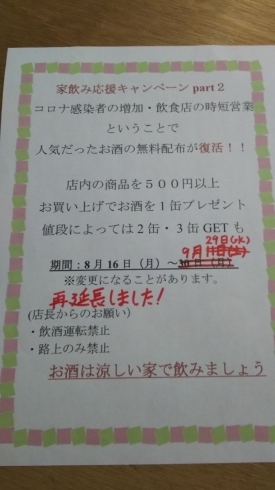 家飲み応援キャンペーン part２
コロナ感染者の増加・飲食店の時短営業
ということで
人気だったお酒の無料配布が復活！！
店内の商品を５００円以上
お買い上げでお酒を１缶プレゼント
値段によっては２缶・３缶 GET も
29日(水)
9月
期間：8月16日（月）～30日（月）
※変更になることがあります。
再延長しました!
(店長からのお願い)
・飲酒運転禁止
・路上のみ禁止
お酒は涼しい家で飲みましょう